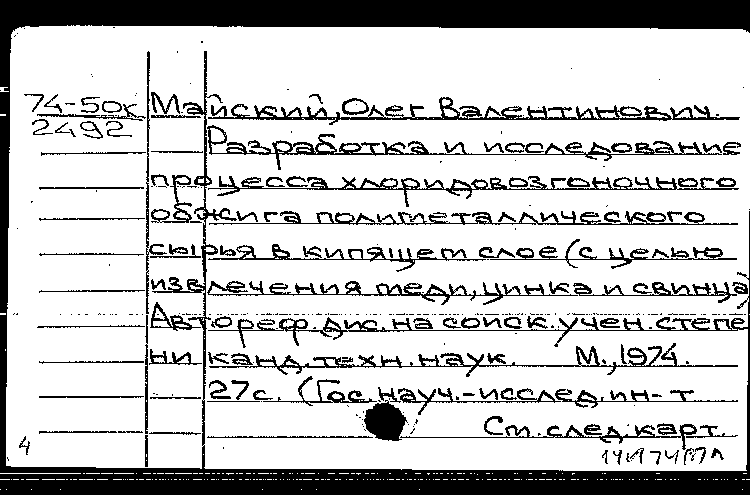 74-50к Майский, Олег Валентинович.
2492
Разработка и исследование
процесса хлоридовозгоночного
обжига полиметаллического
сырья в кипящем слое (с целью
извлечения меди, цинка и свинца)
Автореф. дис. на соиск. учен. степе
ни канд. техн. наук. М., 1974.
27с. (Гос. науч.-исслед. ин-т
См. след. карт.
4